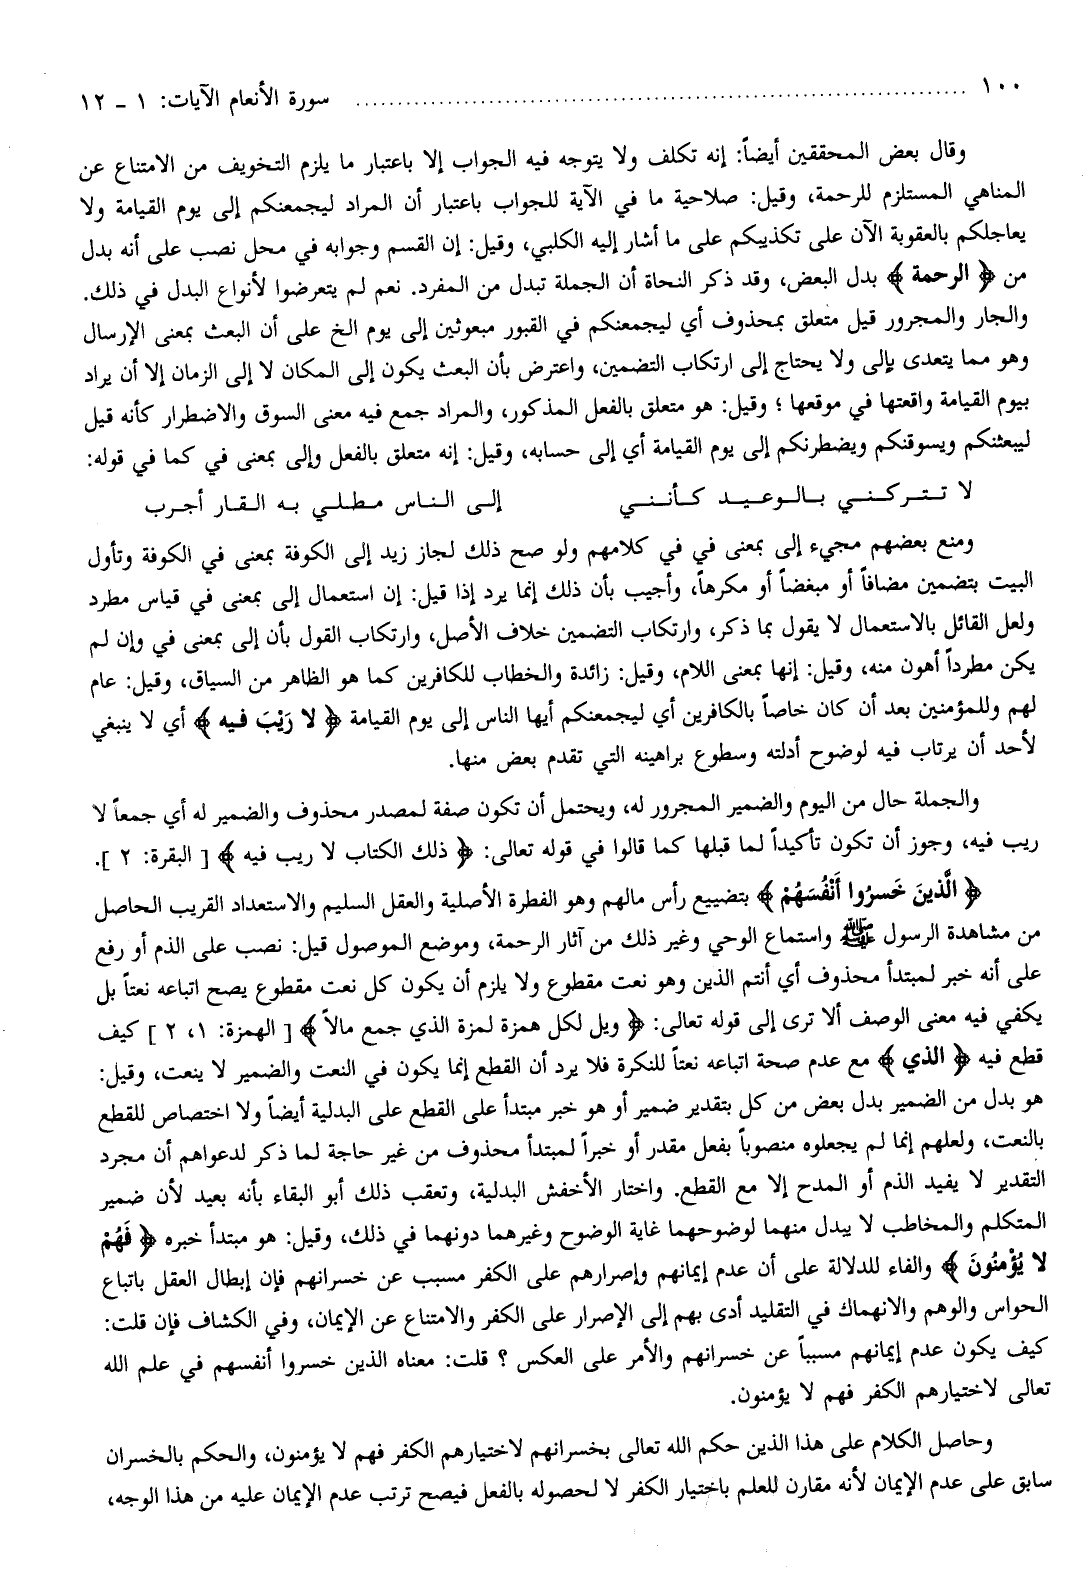 ١٠٠ ........ سورة الأنعام الآيات: ١ - ١٢
وقال بعض المحققين أيضاً: إنه تكلف ولا يتوجه فيه الجواب إلا باعتبار ما يلزم التخويف من الامتناع عن
المناهي المستلزم للرحمة، وقيل: صلاحية ما في الآية للجواب باعتبار أن المراد ليجمعنكم إلى يوم القيامة ولا
يعاجلكم بالعقوبة الآن على تكذيبكم على ما أشار إليه الكلبي، وقيل: إن القسم وجوابه في محل نصب على أنه بدل
من ﴿ الرحمة ﴾ بدل البعض، وقد ذكر النحاة أن الجملة تبدل من المفرد. نعم لم يتعرضوا لأنواع البدل في ذلك.
والجار والمجرور قيل متعلق بمحذوف أي ليجمعنكم في القبور مبعوثين إلى يوم الخ على أن البعث بمعنى الإرسال
وهو مما يتعدى بإلى ولا يحتاج إلى ارتكاب التضمين، واعترض بأن البعث يكون إلى المكان لا إلى الزمان إلا أن يراد
بيوم القيامة واقعتها في موقعها ؛ وقيل: هو متعلق بالفعل المذكور، والمراد جمع فيه معنى السوق والاضطرار كأنه قيل
ليبعثنكم ويسوقنكم ويضطرنكم إلى يوم القيامة أي إلى حسابه، وقيل: إنه متعلق بالفعل وإلى بمعنى في كما في قوله:
لا تتركني بالوعيد كأنني إلى الناس مطلي به القار أجرب
ومنع بعضهم مجيء إلى بمعنى في في كلامهم ولو صح ذلك لجاز زيد إلى الكوفة بمعنى في الكوفة وتأول
البيت بتضمين مضافاً أو مبغضاً أو مكرهاً، وأجيب بأن ذلك إنما يرد إذا قيل: إن استعمال إلى بمعنى في قياس مطرد
ولعل القائل بالاستعمال لا يقول بما ذكر، وارتكاب التضمين خلاف الأصل، وارتكاب القول بأن إلى بمعنى في وإن لم
يكن مطرداً أهون منه، وقيل: إنها بمعنى اللام، وقيل: زائدة والخطاب للكافرين كما هو الظاهر من السياق، وقيل: عام
لهم وللمؤمنين بعد أن كان خاصاً بالكافرين أي ليجمعنكم أيها الناس إلى يوم القيامة ﴿ لا رَيْبَ فيه ﴾ أي لا ينبغي
لأحد أن يرتاب فيه لوضوح أدلته وسطوع براهينه التي تقدم بعض منها.
والجملة حال من اليوم والضمير المجرور له، ويحتمل أن تكون صفة لمصدر محذوف والضمير له أي جمعاً لا
ريب فيه، وجوز أن تكون تأكيداً لما قبلها كما قالوا في قوله تعالى: ﴿ ذلك الكتاب لا ريب فيه ﴾ [ البقرة: ٢ ].
﴿ الَّذينَ خَسرُوا أَنْفُسَهُمْ ﴾ بتضييع رأس مالهم وهو الفطرة الأصلية والعقل السليم والاستعداد القريب الحاصل
من مشاهدة الرسول ﷺ واستماع الوحي وغير ذلك من آثار الرحمة، وموضع الموصول قيل: نصب على الذم أو رفع
على أنه خبر لمبتدأ محذوف أي أنتم الذين وهو نعت مقطوع ولا يلزم أن يكون كل نعت مقطوع يصح اتباعه نعتاً بل
يكفي فيه معنى الوصف ألا ترى إلى قوله تعالى: ﴿ ويل لكل همزة لمزة الذي جمع مالاً ﴾ [ الهمزة: ١، ٢ ] كيف
قطع فيه ﴿ الذي ﴾ مع عدم صحة اتباعه نعتاً للنكرة فلا يرد أن القطع إنما يكون في النعت والضمير لا ينعت، وقيل:
هو بدل من الضمير بدل بعض من كل بتقدير ضمير أو هو خبر مبتدأ على القطع على البدلية أيضاً ولا اختصاص للقطع
بالنعت، ولعلهم إنما لم يجعلوه منصوباً بفعل مقدر أو خبراً لمبتدأ محذوف من غير حاجة لما ذكر لدعواهم أن مجرد
التقدير لا يفيد الذم أو المدح إلا مع القطع. واختار الأخفش البدلية، وتعقب ذلك أبو البقاء بأنه بعيد لأن ضمير
المتكلم والمخاطب لا يبدل منهما لوضوحهما غاية الوضوح وغيرهما دونهما في ذلك، وقيل: هو مبتدأ خبره ﴿ فَهُمْ
لا يُؤْمنُونَ ﴾ والفاء للدلالة على أن عدم إيمانهم وإصرارهم على الكفر مسبب عن خسرانهم فإن إبطال العقل باتباع
الحواس والوهم والانهماك في التقليد أدى بهم إلى الإصرار على الكفر والامتناع عن الإيمان، وفي الكشاف فإن قلت:
كيف يكون عدم إيمانهم مسبباً عن خسرانهم والأمر على العكس ؟ قلت: معناه الذين خسروا أنفسهم في علم الله
تعالى لاختيارهم الكفر فهم لا يؤمنون.
وحاصل الكلام على هذا الذين حكم الله تعالى بخسرانهم لاختيارهم الكفر فهم لا يؤمنون، والحكم بالخسران
سابق على عدم الإيمان لأنه مقارن للعلم باختيار الكفر لا لحصوله بالفعل فيصح ترتب عدم الإيمان عليه من هذا الوجه،